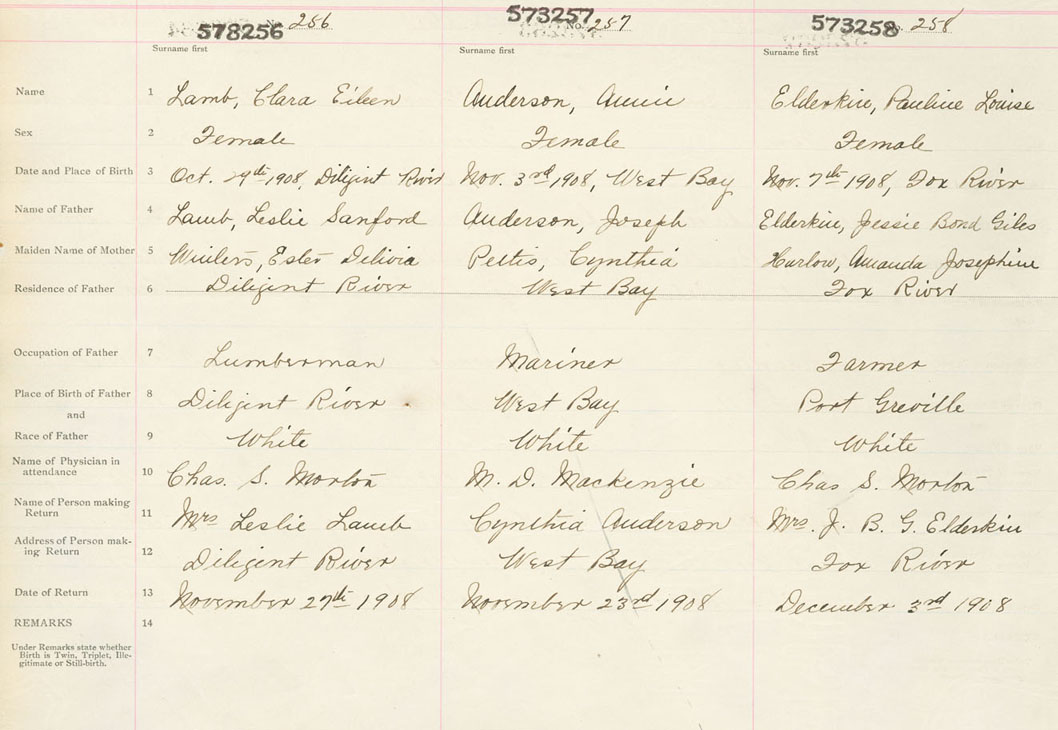 578256 No. 256 573257 No. 257 573258 No. 258
Surname first Surname first Surname first
Name 1 Lamb, Clara Eileen Anderson, Annie Elderkin, Pauline Louise
Sex 2 Female Female Female
Date and Place of Birth 3 Oct. 29th 1908, Diligent River Nov. 3rd 1908, West Bay Nov. 7th 1908, Fox River
Name of Father 4 Lamb, Leslie Sanford Anderson, Joseph Elderkin, Jessie Bond Giles
Maiden Name of Mother 5 Ester Pettis, Cynthia Hurlow, Amanda Josephine
Residence of Father 6 Diligent River West Bay Fox River
Occupation of Father 7 Lumberman Mariner Farmer
Place of Birth of Father 8 Diligent River West Bay Port Greville
and
Race of Father 9 White White White
Name of Physician in
attendance 10 Chas. S. Morton M. D. Mackenzie Chas S. Morton
Name of Person making
Return 11 Mrs Leslie Lamb Cynthia Anderson Mrs. J. B. G. Elderkin
Address of Person mak-
ing Return 12 Diligent River West Bay Fox River
Date of Return 13 November 27th 1908 November 23rd 1908 December 3rd 1908
REMARKS 14
Under Remarks state whether
Birth is Twin, Triplet, Ille-
gitimate or Still-birth.